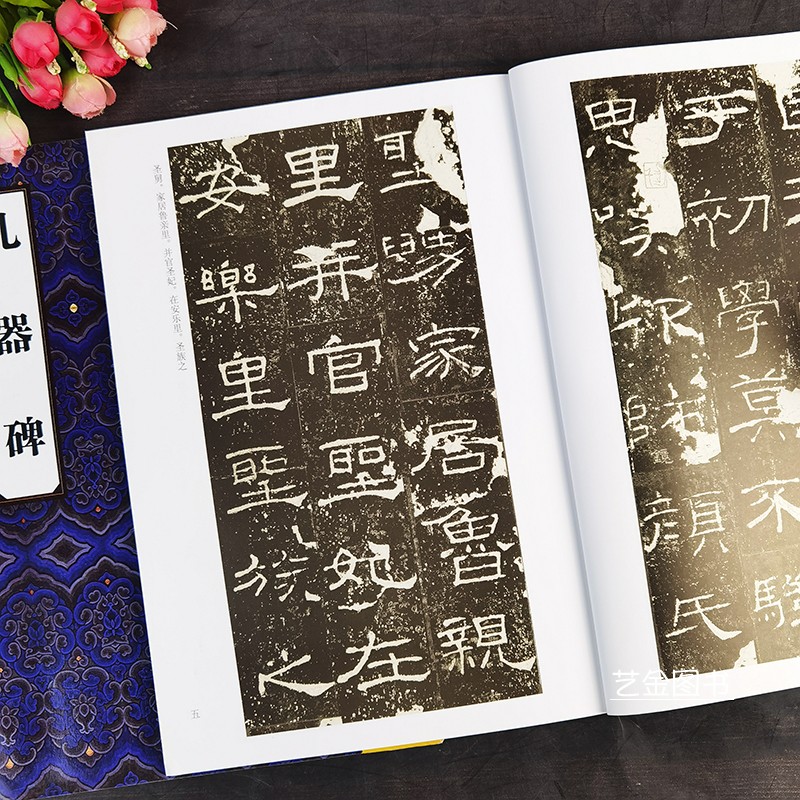 器碑
聖舅家居魯親
里并官聖妃在
安樂里聖族之
圣舅，家居鲁亲里，并官圣妃，在安乐里。圣族之
五
于初學莫不驥
思嘆卬師鏡顏氏
艺金图书